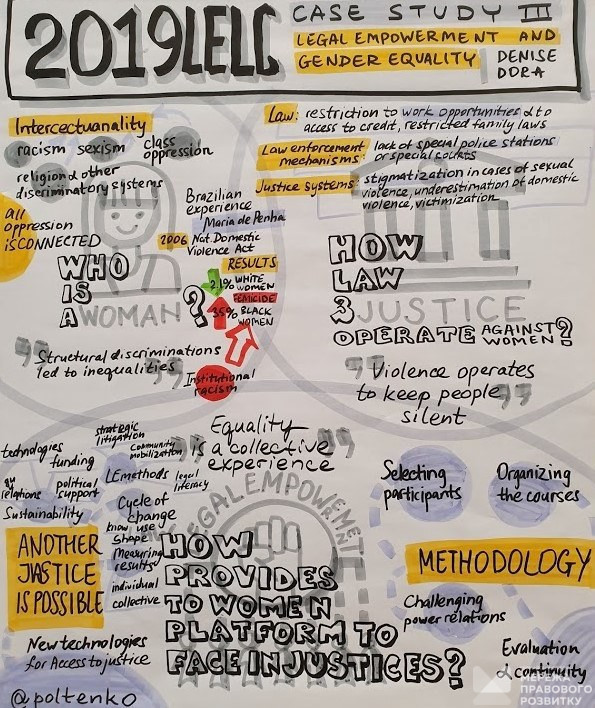 2019LELC
CASE STUDY III
LEGAL EMPOWERMENT AND
GENDER EQUALITY
DENISE
DORA
Intercectuanality
racism sexism class
oppression
religion & other
discriminatory systems
all
oppression
is CONNECTED
WHO
IS
A WOMAN?
Brazilian
experience
Maria de Penha
2006 Nat. Domestic
Violence Act
RESULTS
2.1% WHITE
WOMEN
FEMICIDE
35% BLACK
WOMEN
Institutional
racism
"Structural discriminations
led to inequalities"
Law: restriction to work opportunities & to
access to credit, restricted family laws
Law enforcement
mechanisms: lack of special police stations
or special courts
Justice systems: stigmatization in cases of sexual
violence, underestimation of domestic
violence, victimization
HOW
LAW
& JUSTICE
OPERATE AGAINST
WOMEN?
"Violence operates
to keep people
silent"
Equality
is a collective
experience"
strategic
litigation
community
mobilization
technologies
funding
LE methods
legal
literacy
relations
political
support
Sustainability
Cycle of
change
know, use
shape
Measuring
results
individual
collective
LEGAL EMPOWERMENT
HOW
PROVIDES
TO WOMEN
PLATFORM TO
FACE INJUSTICES?
ANOTHER
JASTICE
IS POSSIBLE
New technologies
for Access to justice
@poltenko
Selecting
participants
Organizing
the courses
METHODOLOGY
Challenging
power relations
Evaluation
& continuity
МЕРЕЖА
ПРАВОВОГО
РОЗВИТКУ